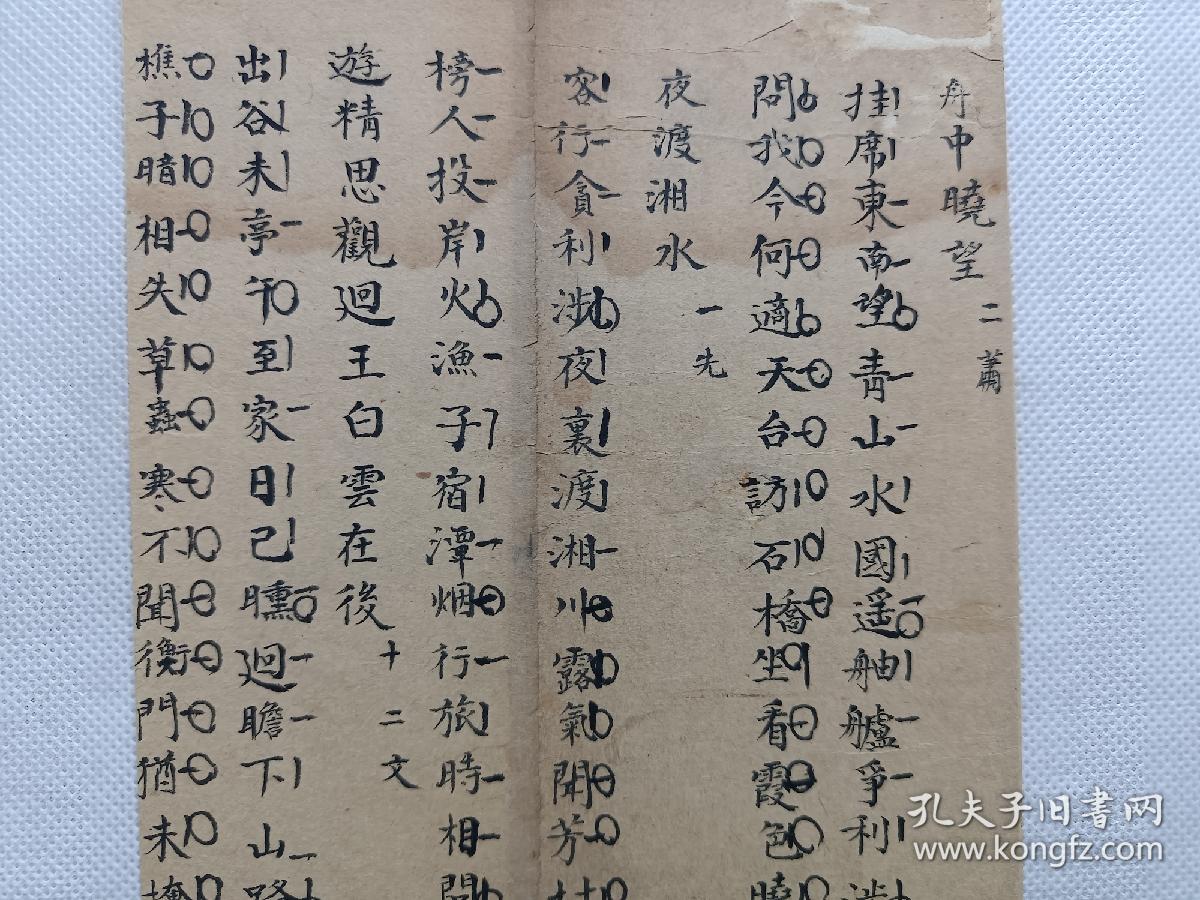 舟中曉望
二蕭
挂席東南望青山水國遥舳艫爭利涉
問我今何適天台訪石橋坐看霞色曉
夜渡湘水
一先
客行貪利涉夜裏渡湘川露氣聞芳
榜人投岸火漁子宿潭烟行旅時相問
遊精思觀迴王白雲在後
十二文
出谷未亭午至家日已曛迴瞻下山路
樵子暗相失草蟲寒不聞衡門猶未掩
孔夫子旧书网
www.kongfz.com